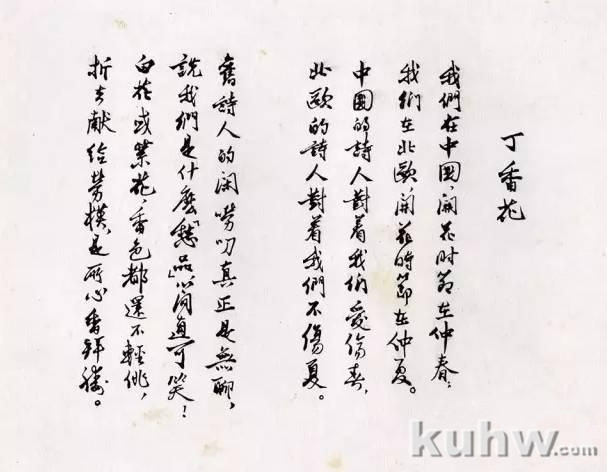 丁香花
我們在中國，開花时節在仲春；
我們在北歐，開花時節在仲夏。
中國的詩人對着我们愛傷春，
北歐的詩人對着我們不傷夏。
舊詩人的闲嘮叨真正是無聊，
說我們是什麽「愁品」簡直可笑！
白花或紫花，香色都還不輕佻，
折去献给勞模，是所心香拜禱。
kuhw.com